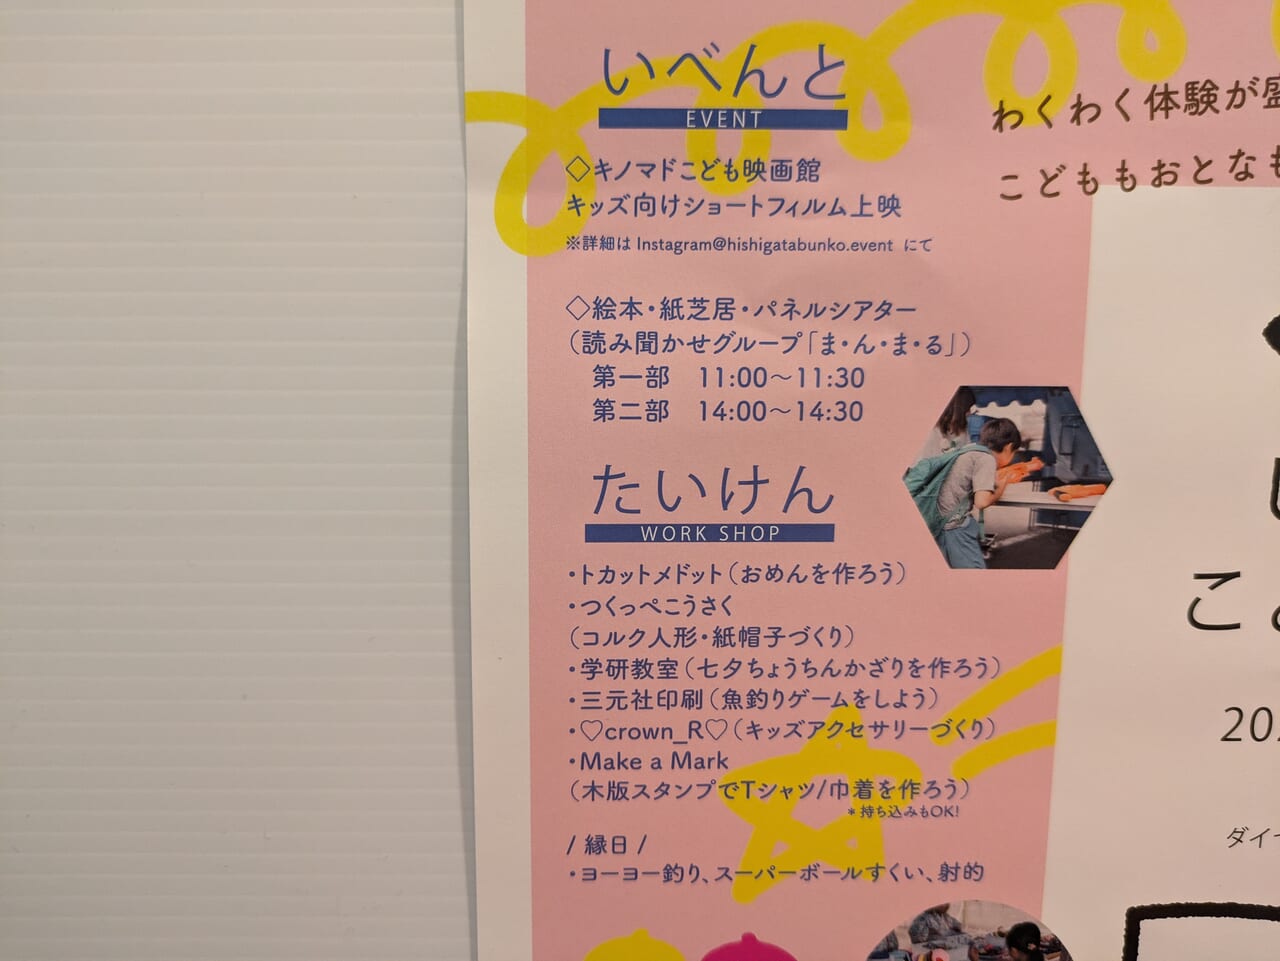 いべんと
EVENT
◇キノマドこども映画館
キッズ向けショートフィルム上映
※詳細は Instagram@hishigatabunko.event にて
◇絵本・紙芝居・パネルシアター
（読み聞かせグループ「ま・ん・ま・る」）
第一部 11:00〜11:30
第二部 14:00〜14:30
たいけん
WORK SHOP
・トカットメドット（おめんを作ろう）
・つくっぺこうさく
（コルク人形・紙帽子づくり）
・学研教室（七夕ちょうちんかざりを作ろう）
・三元社印刷（魚釣りゲームをしよう）
・♡crown_R♡（キッズアクセサリーづくり）
・Make a Mark
（木版スタンプでTシャツ/巾着を作ろう）
＊持ち込みもOK!
/ 縁日 /
・ヨーヨー釣り、スーパーボールすくい、射的
わくわく体験が盛
こどももおとなも
こ
202
ダイ